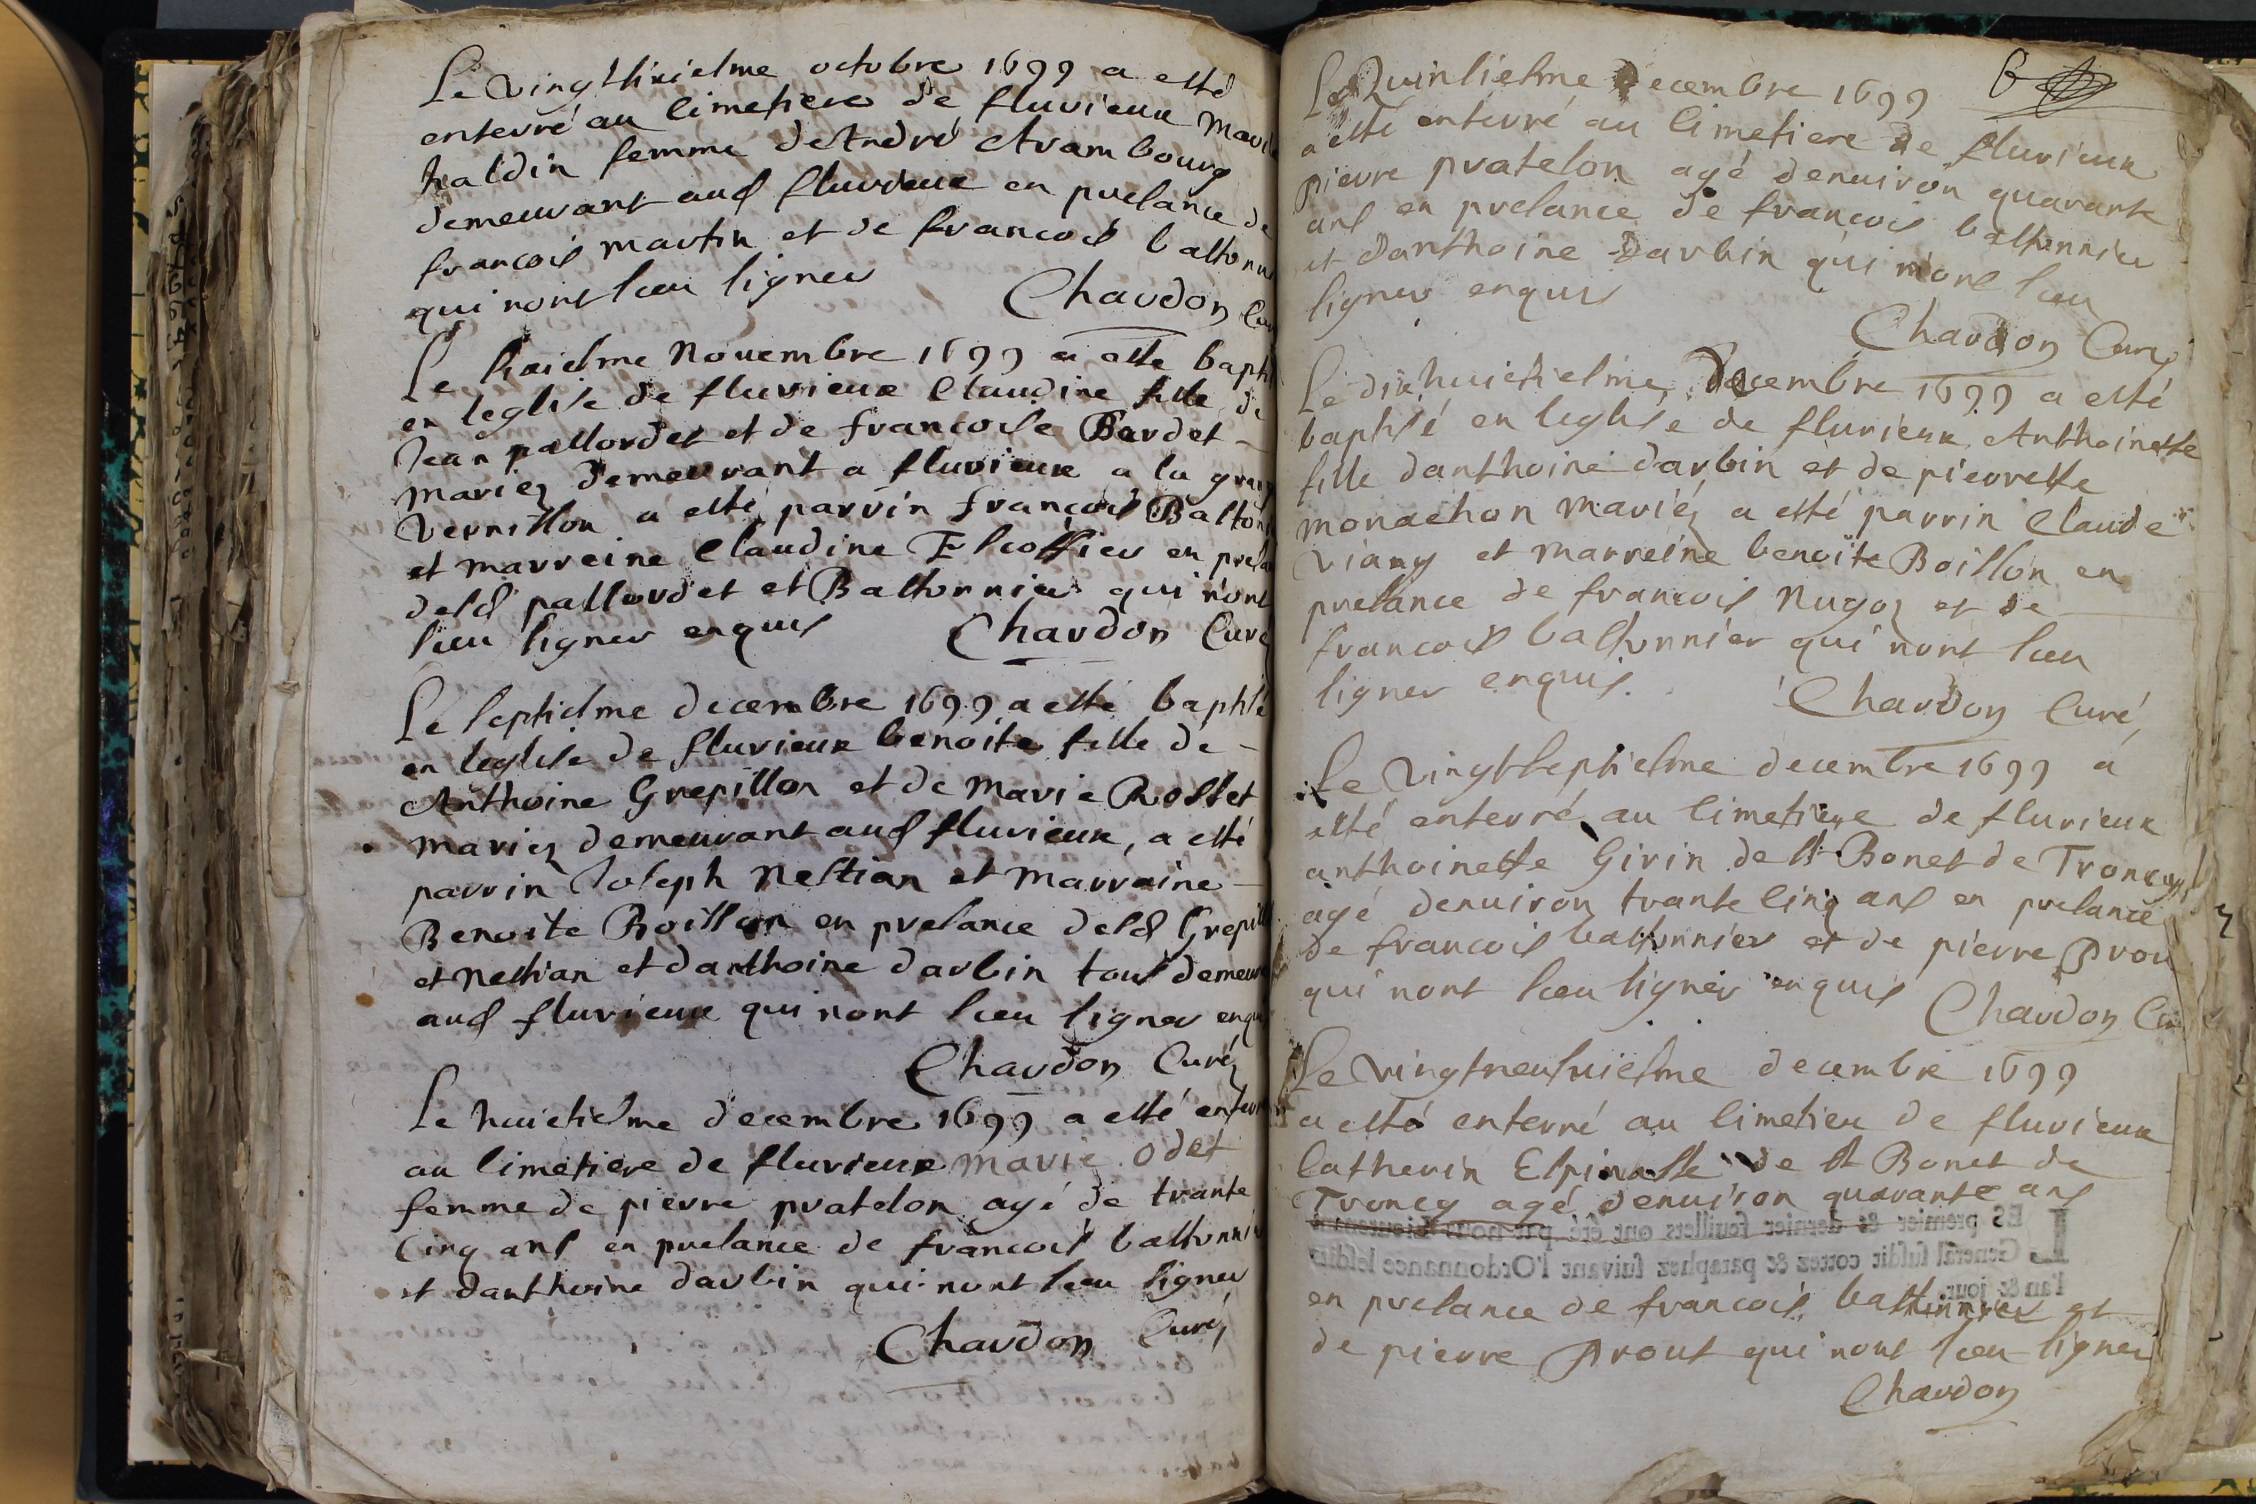 Le vingtsixiesme octobre 1699 a esté
enterré au simetiere de fluvieux
haldin femme de André Arambourg
demeurant aud fluvieux en presance de
francois martin et de francois bastonn
qui nont sceu signer Chardon Cu
Le sixiesme Novembre 1699 a esté bapti
en leglise de fluvieux Claudine fille de
Jean pallordet et de francoise Bardet
mariez demeurant a fluvieux a la gran
Vernillon a esté parrin francois Baston
et marreine Claudine Escoffier en presa
desd pallordet et Bastonnier qui nont
sceu signer enquis Chardon Curé
Le septiesme decembre 1699 a esté baptisé
en leglise de fluvieux benoite fille de
Anthoine Grepillon et de Marie Rosset
mariez demeurant aud fluvieux, a esté
parrin Joseph Nestian et marraine
Benoite Boillon en presance desd Grepill
et Nestian et danthoine darbin tous demeur
aud fluvieux qui nont sceu signer enqui
Chardon Curé
Le huictiesme decembre 1699 a esté enterr
au simetiere de fluvieux marie Odet
femme de pierre pratelon agé de trante
cinq ans en presance de francois bastonnie
et danthoine darbin qui nont sceu signer
Chardon Curé
6
Le Quinsiesme decembre 1699
a esté enterré au simetiere de fluvieux
pierre pratelon agé denuiron quarante
ans en presance de francois bastonnier
et danthoine Darbin qui nont sceu
signer enquis
Chardon Curé
Le dix huictiesme Decembre 1699 a esté
baptisé en leglise de fluvieux Anthoinette
fille danthoine darbin et de pierrette
monachon mariéz a esté parrin Claude
viany et marreine benoite Boillon en
presance de francois Nugoz et de
francois bastonnier qui nont sceu
signer enquis.
Chardon Curé
Le vingtseptiesme decembre 1699 a
esté enterré au simetiere de fluvieux
anthoinette Girin de St Bonet de Troncy
agé denuiron trante cinq ans en presance
de francois bastonnier et de pierre Prou
qui nont sceu signer enquis
Chardon Cu
Le vingtneufuiesme decembre 1699
a esté enterré au simetiere de fluvieux
Catherin Espinasse de St Bonet de
Troncy agé denuiron quarante ans
LES premier & dernier feuillets ont été par nous
General susdit cottez & paraphez suivant l'Ordonnance lesdits
l'an & jour
en presance de francois bastonnier et
de pierre Prout qui nont sceu signer
Chardon